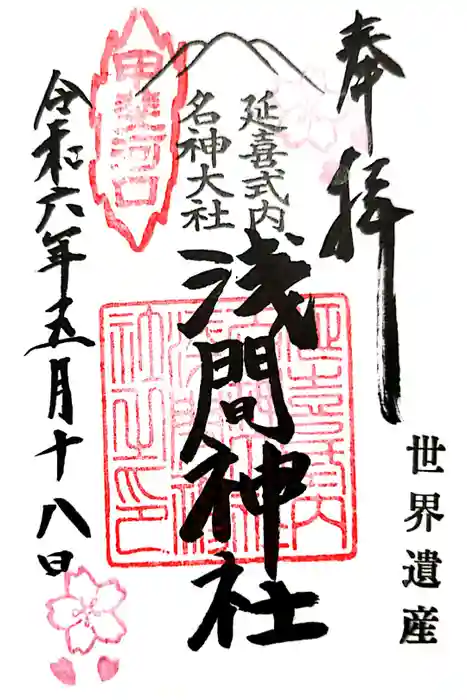 奉拝
世界遺産
延喜式内
名神大社
浅間神社
甲斐河口
令和六年五月十八日